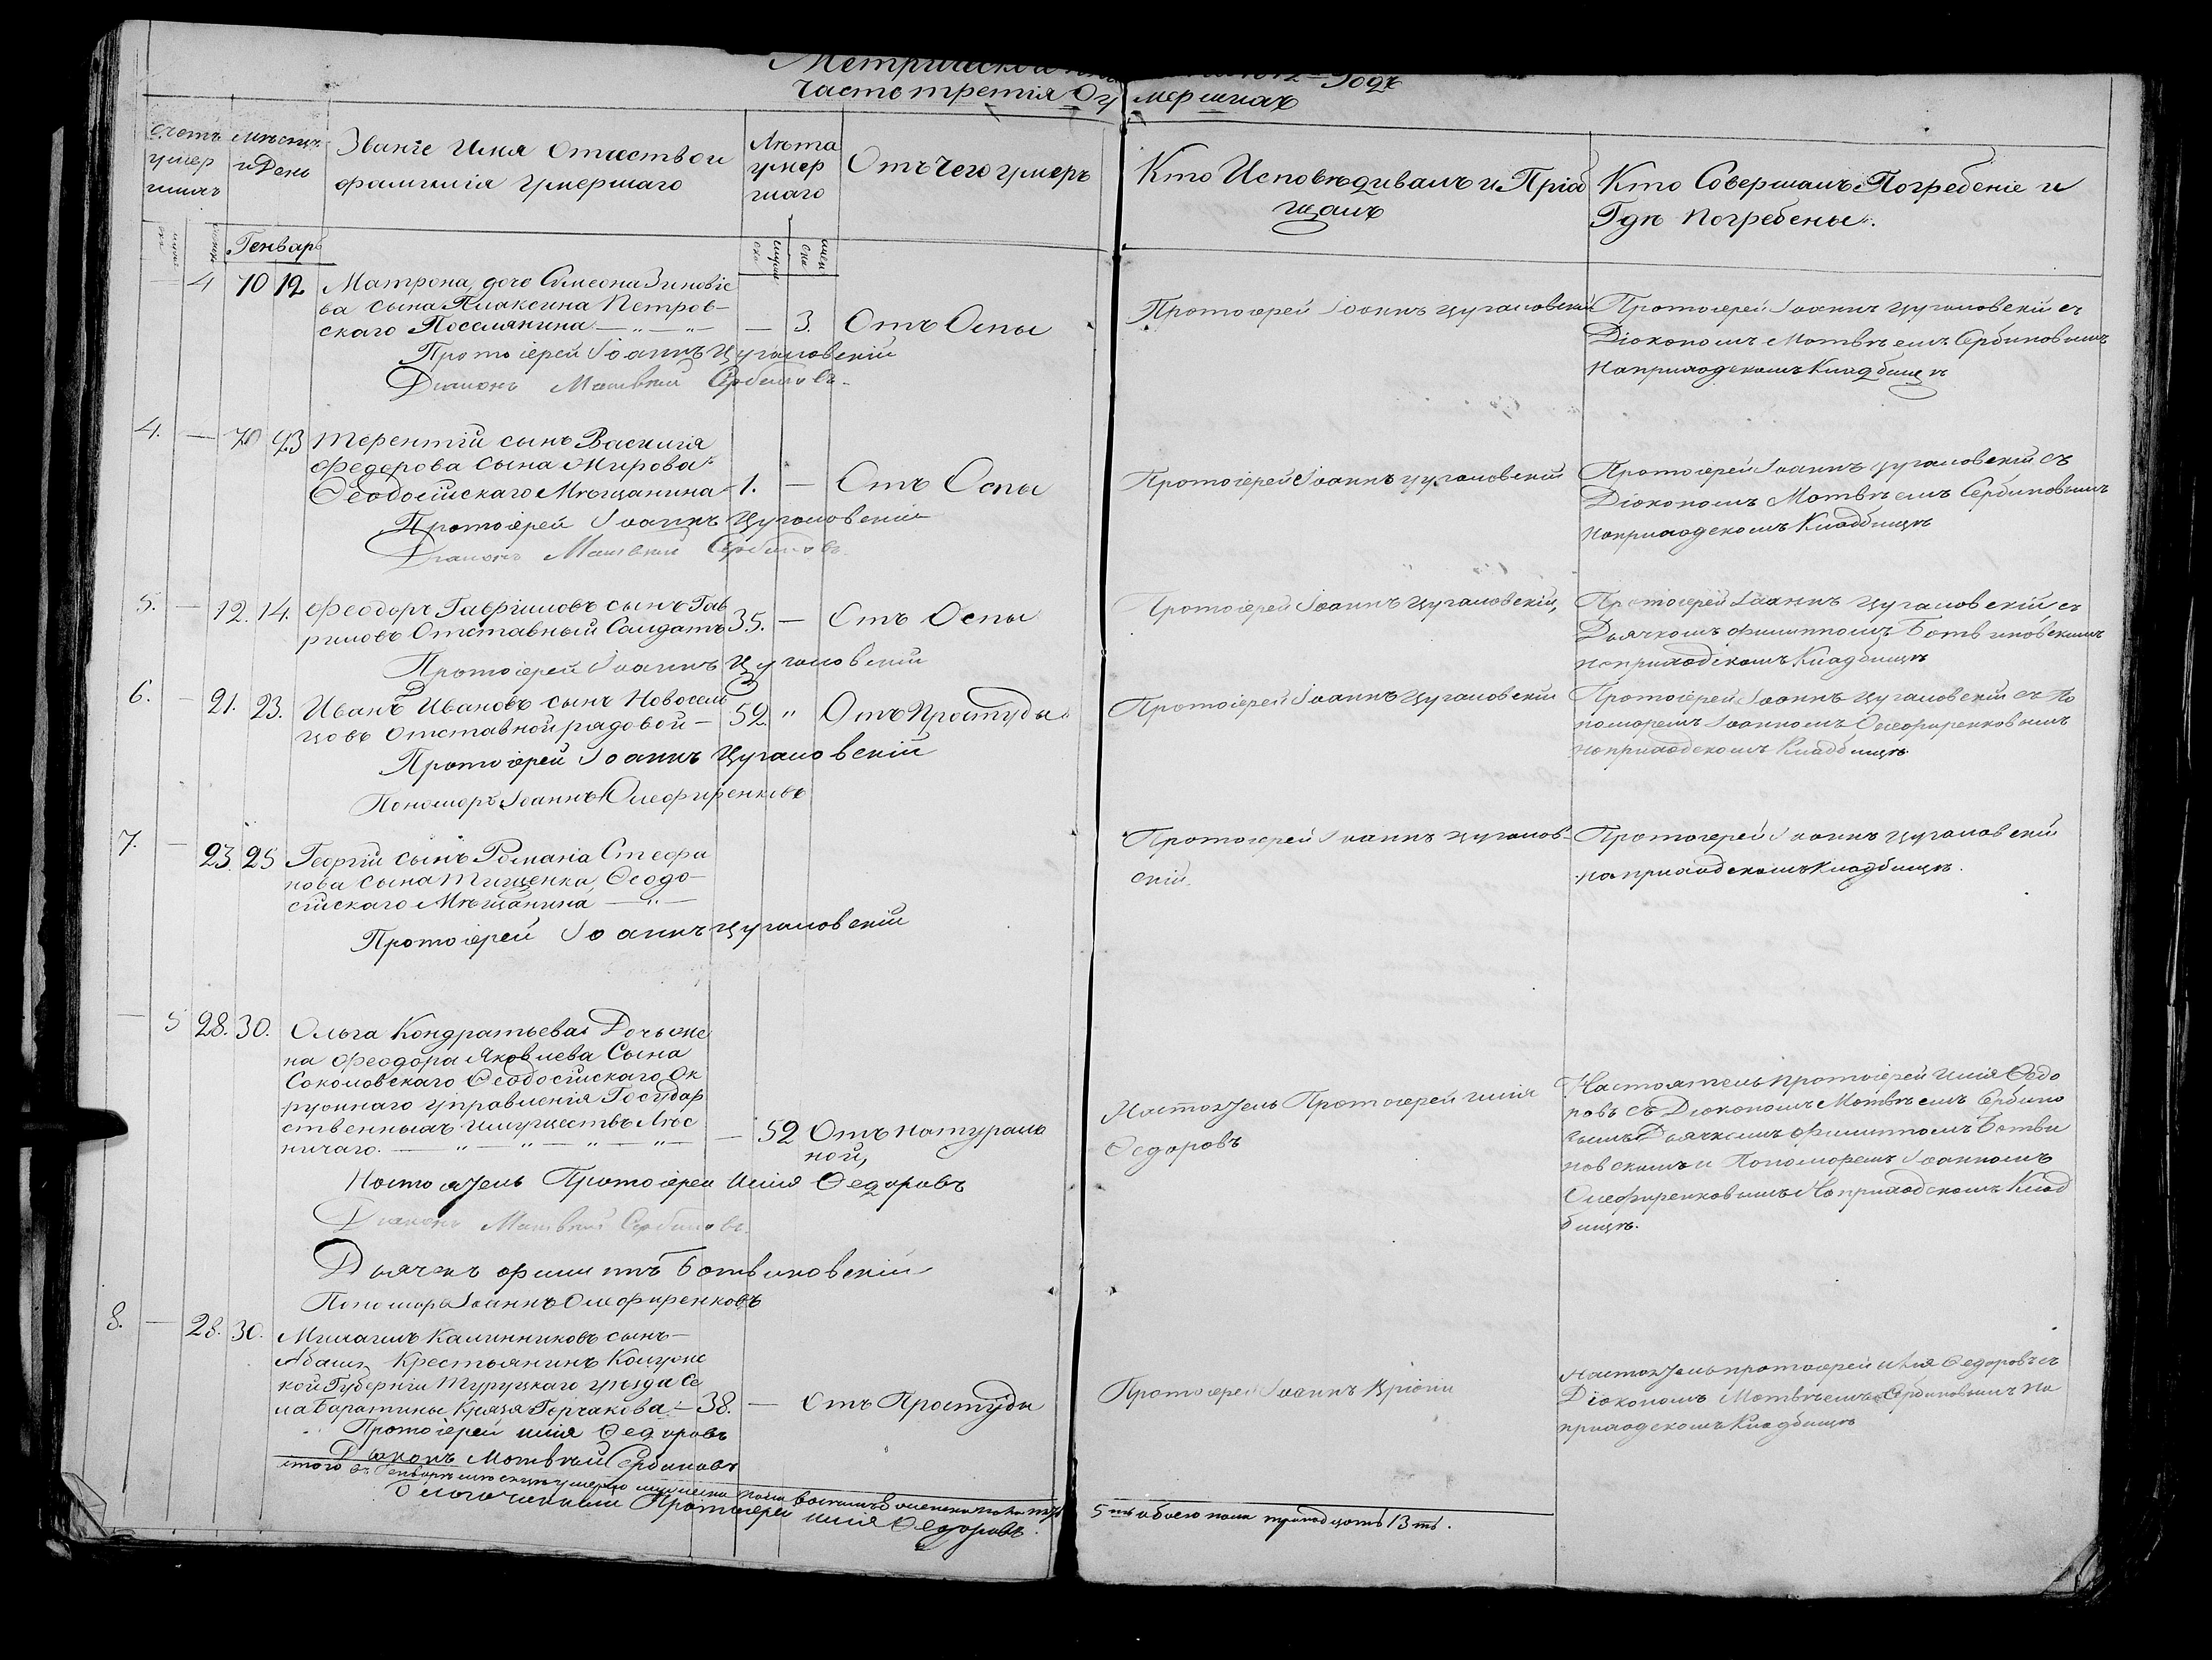 Часть третія О умершихъ
Счетъ умер шихъ
Мѣсяцъ и День
Званіе Имя Отчество и
фамилія Умершаго
Лѣта умер шаго
Отъ Чего умеръ
Кто Исповѣдивалъ и Пріоб
щалъ
Кто Совершалъ Погребеніе и
Гдѣ Погребены.
Генварь
4 10 12 Матрона, дочь Симеона Зиновіе
ва сына Плаксина Петров-
скаго Поселянина — 3. Отъ Оспы
Протоіерей Іоаннъ Цугаловскій
Діаконъ Матвѣй Сербиновъ.
Протоіерей Іоаннъ Цугаловскій
Протоіерей Іоаннъ Цугаловскій съ
Діокономъ Мотвѣемъ Сербиновымъ
На приходскомъ Кладбищѣ
4. — 23 Терентій сынъ Василія
Федорова сына Мирова
Ѳеодосійскаго Мѣщанина 1. — Отъ Оспы
Протоіерей Іоаннъ Цугаловскій
Діаконъ Матвѣй Сербиновъ.
Протоіерей Іоаннъ Цугаловскій
Протоіерей Іоаннъ Цугаловскій съ
Діокономъ Мотвѣемъ Сербиновымъ
на приходскомъ Кладбищѣ
5. — 12. 14. Феодоръ Гавріиловъ сынъ Гав
риловъ Отставный Салдатъ 35. — Отъ Оспы
Протоіерей Іоаннъ Цугаловскій
Протоіерей Іоаннъ Цугаловскій,
Протоіерей Іоаннъ Цугаловскій съ
Дьячкомъ Филиппомъ Ботвиновскимъ
на приходскомъ Кладбищѣ
6. — 21. 23. Иванъ Ивановъ сынъ Новосель
цовъ Отставной рядовой — 52 " Отъ Простуды
Протоіерей Іоаннъ Цугаловскій
Пономарь Іоаннъ Олефиренковъ
Протоіерей Іоаннъ Цугаловскій
Протоіерей Іоаннъ Цугаловскій съ По
номоремъ Іоанномъ Олефиренковымъ
на приходскомъ Кладбищѣ
7. — 23. 25 Георгій сынъ Романа Стефа
нова сына Тищенка, Ѳеодо-
сійскаго Мѣщанина — " —
Протоіерей Іоаннъ Цугаловскій
Протоіерей Іоаннъ Цугалов-
скій.
Протоіерей Іоаннъ Цугаловскій
на приходскомъ Кладбищѣ.
— 5 28. 30. Ольга Кондратьева Дочь же
на Феодора Яковлева Сына
Соколовскаго Ѳеодосійскаго Ок
ружнаго Управленія Государ
ственныхъ Имуществъ Лѣс
ничаго. — " — " — " — " — 52 Отъ натураль
ной,
Настоятель Протоіерей Илія Ѳедоровъ
Діаконъ Матвѣй Сербиновъ.
Дьячекъ Филиппъ Ботвиновскій
Пономарь Іоаннъ Олефиренковъ
Настоятель Протоіерей Илія
Ѳедоровъ
Настоятель Протоіерей Илія Ѳедо
ровъ съ Діокономъ Мотвѣемъ Сербино
вымъ Дьячкомъ Филиппомъ Ботви
новскимъ и Пономоремъ Іоанномъ
Олефиренковымъ На приходскомъ Клад
бищѣ.
8. — 28. 30. Михаилъ Калинниковъ сынъ —
Крестьянинъ Калужс
кой Губерніи уѣзда Се
ла Баратины Князя Горчакова — 38. — Отъ Простуды
Протоіерей Илія Ѳедоровъ
Діаконъ Мотвѣй Сербиновъ
Протоіерей Іоаннъ
Настоятель протоіерей Илія Ѳедоровъ съ
Діокономъ Мотвѣемъ Сербиновымъ На
приходскомъ Кладбищѣ
Итого въ Генварѣ мѣсяцѣ умерло мужеска пола восемь 8 женска пола пять
5 ть обоего пола тринадцать 13 ть.
Благочинный Протоіерей Илія Ѳедоровъ.